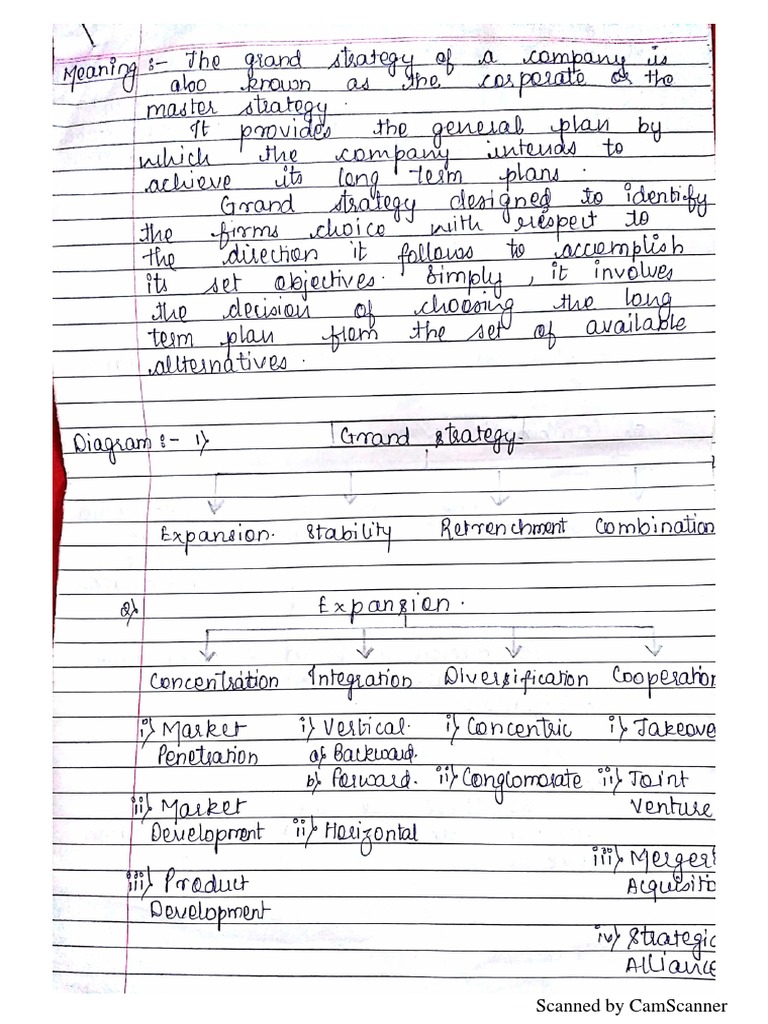 Meaning :- The grand strategy of a company is
also known as the corporate or the
master strategy.
It provides the general plan by
which the company intends to
achieve its long term plans.
Grand strategy designed to identify
the firms choice with respect to
the direction it follows to accomplish
its set objectives. Simply, it involves
the decision of choosing the long
term plan from the set of available
allternatives.
Diagram :- 1) Grand strategy.
Expansion. Stability Retrenchment Combination
2) Expansion.
Concentration Integration Diversification Cooperation
i) Market i) Vertical. i) Concentric i) Takeove
Penetration a) Backward.
b) Forward. ii) Conglomorate ii) Joint
ii) Market Venture
Development ii) Horizontal
iii) Merger
iii) Product Acquisitio
Development
iv) Strategic
Alliance
Scanned by CamScanner